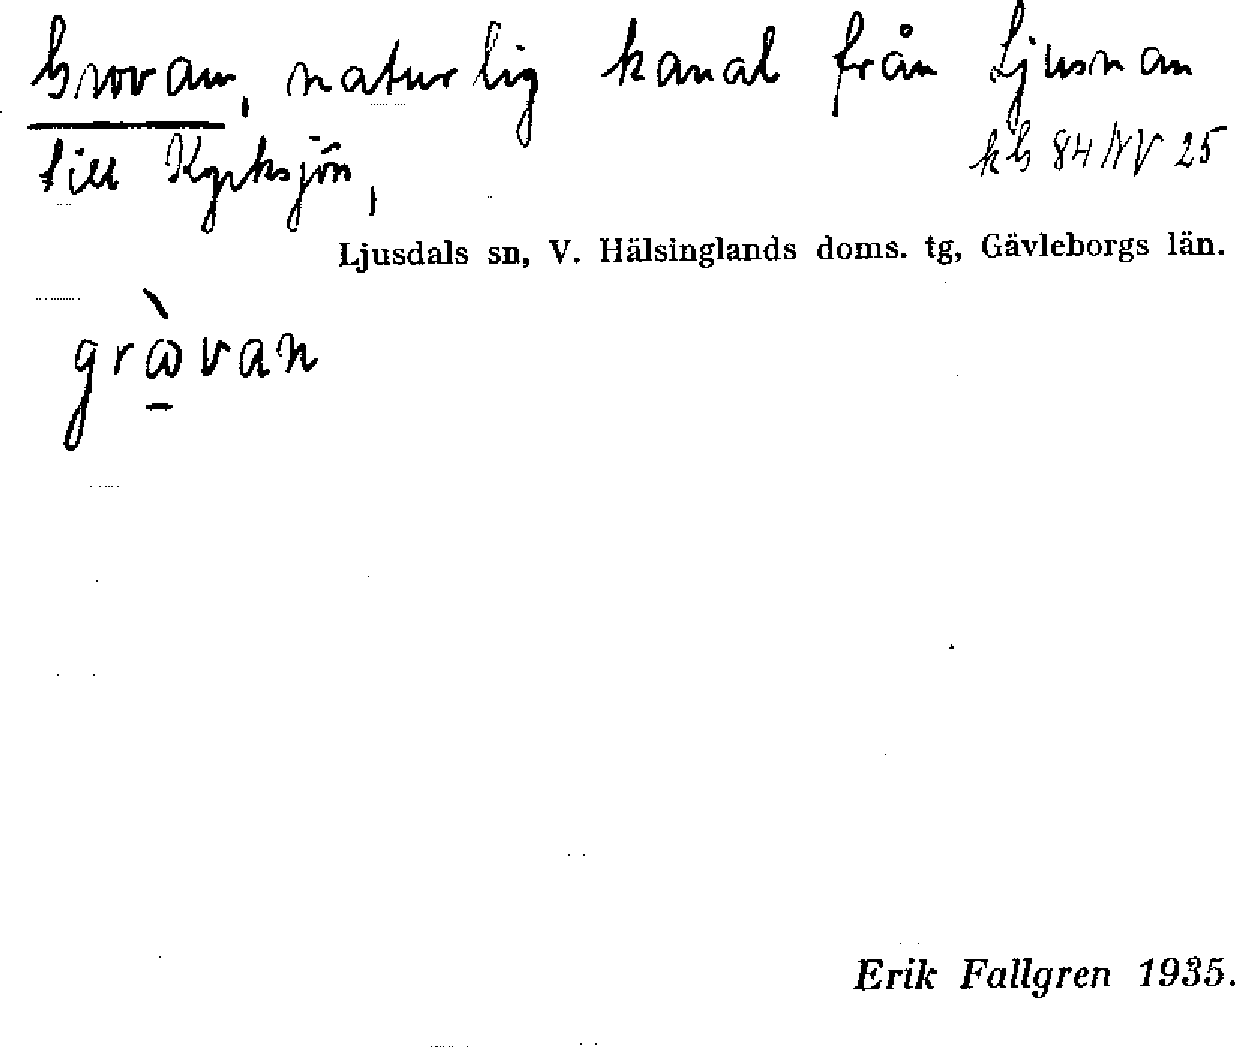 Grovan, naturlig kanal från Ljusnan
till Kyrksjön,
kb 84 NV 25
Ljusdals sn, V. Hälsinglands doms. tg, Gävleborgs län.
grὼvan
Erik Fallgren 1935.